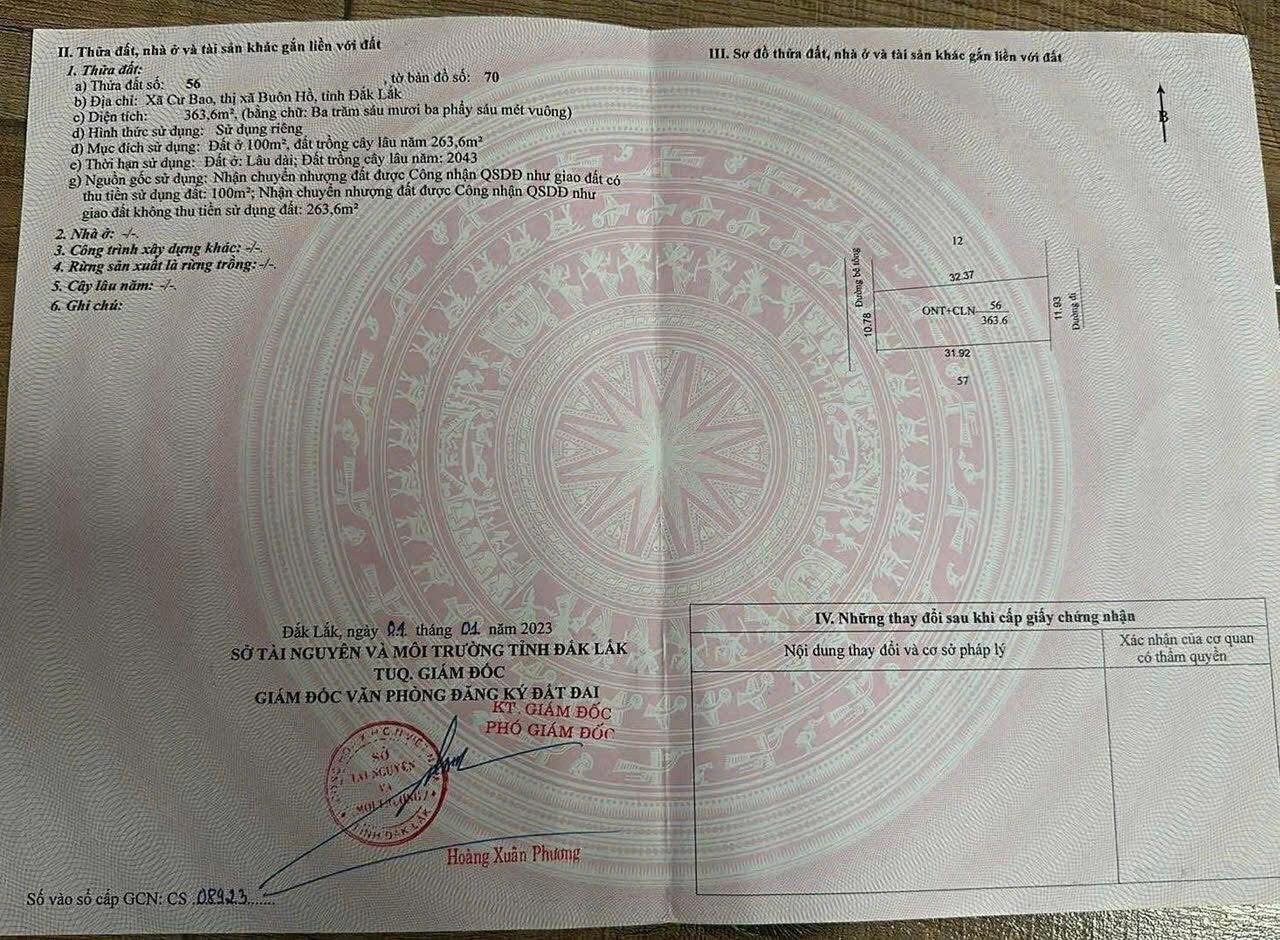 II. Thửa đất, nhà ở và tài sản khác gắn liền với đất
1. Thửa đất:
a) Thửa đất số: 56 , tờ bản đồ số: 70
b) Địa chỉ: Xã Cư Bao, thị xã Buôn Hồ, tỉnh Đắk Lắk
c) Diện tích: 363,6m², (bằng chữ: Ba trăm sáu mươi ba phẩy sáu mét vuông)
d) Hình thức sử dụng: Sử dụng riêng
đ) Mục đích sử dụng: Đất ở 100m², đất trồng cây lâu năm 263,6m²
e) Thời hạn sử dụng: Đất ở: Lâu dài; Đất trồng cây lâu năm: 2043
g) Nguồn gốc sử dụng: Nhận chuyển nhượng đất được Công nhận QSDĐ như giao đất có
thu tiền sử dụng đất: 100m²; Nhận chuyển nhượng đất được Công nhận QSDĐ như
giao đất không thu tiền sử dụng đất: 263,6m²
2. Nhà ở: -/-.
3. Công trình xây dựng khác: -/-.
4. Rừng sản xuất là rừng trồng:-/-.
5. Cây lâu năm: -/-.
6. Ghi chú:
Đắk Lắk, ngày 01 tháng 01 năm 2023
SỞ TÀI NGUYÊN VÀ MÔI TRƯỜNG TỈNH ĐẮK LẮK
TUQ. GIÁM ĐỐC
GIÁM ĐỐC VĂN PHÒNG ĐĂNG KÝ ĐẤT ĐAI
KT. GIÁM ĐỐC
PHÓ GIÁM ĐỐC
SỞ
TÀI NGUYÊN
VÀ
MÔI TRƯỜNG
TỈNH ĐẮK LẮK
Hoàng Xuân Phương
Số vào sổ cấp GCN: CS .08923.......
III. Sơ đồ thửa đất, nhà ở và tài sản khác gắn liền với đất
B
12
32.37
Đường bê tông
10.78
ONT+CLN 56
363.6
11.93
Đường đi
31.92
57
IV. Những thay đổi sau khi cấp giấy chứng nhận
Nội dung thay đổi và cơ sở pháp lý
Xác nhận của cơ quan
có thẩm quyền